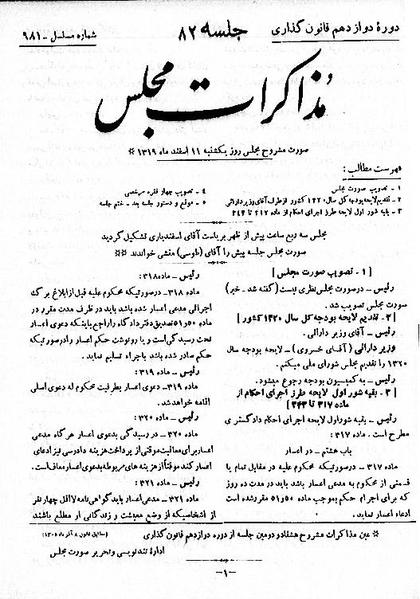 دورهٔ دوازدهم قانون گذاری
جلسه ۸۲
شماره مسلسل - ۹۸۱
مذاکرات مجلس
صورت مشروح مجلس روز یکشنبه ۱۱ اسفند ماه ۱۳۱۹ *
فهرست مطالب:
۱ - تصویب صورت مجلس
۲ - تقدیم لایحه بودجه کل سال ۱۳۲۰ کشور از طرف آقای وزیر دارائی
۳ - بقیه شور اول لایحه طرز اجرای احکام از ماده ۳۱۷ تا ۳۴۳
۴ - تصویب چهار فقره مرخصی
۵ - موقع و دستور جلسه بعد - ختم جلسه
مجلس سه ربع ساعت پیش از ظهر بریاست آقای اسفندیاری تشکیل گردید
صورت جلسه پیش را آقای (طوسی) منشی خواندند **
[ ۱ - تصویب صورت مجلس ]
رئیس - در صورت مجلس نظری نیست (گفته شد - خیر)
صورت مجلس تصویب شد.
[ ۲ - تقدیم لایحه بودجه کل سال ۱۳۲۰ کشور ]
رئیس - آقای وزیر دارائی.
وزیر دارائی (آقای خسروی) - لایحه بودجه سال
۱۳۲۰ را تقدیم مجلس شورای ملی میکنم.
رئیس - به کمیسیون بودجه رجوع میشود.
[ ۳ - بقیه شور اول لایحه طرز اجرای احکام از
ماده ۳۱۷ تا ۳۴۳ ]
رئیس - بقیه شور اول لایحه اجرای احکام دادگستری
مطرح است. ماده ۳۱۷:
باب هشتم - در اعسار
ماده ۳۱۷ - در صورتیکه محکوم علیه در مقابل تمام یا
قسمتی از محکوم به مدعی اعسار باشد باید در مدت ده روز
که برای اجرای حکم بموجب ماده ۵۰ و ۵۱ مقرر شده است
ادعاء اعسار نماید.
رئیس - ماده ۳۱۸:
ماده ۳۱۸ - در صورتیکه محکوم علیه قبل از ابلاغ برگ
اجرائی مدعی اعسار شده باشد باید در ظرف مدت مقرر در
ماده ۵۰ و ۵۱ تصدیق دفتر دادگاه را راجع باینکه دعوی اعسار
تحت رسیدگی است و یا رونوشت حکم اعسار را در صورتیکه
حکم صادر شده باشد باجراء تسلیم نماید.
رئیس - ماده ۳۱۹:
ماده ۳۱۹ - دعوی اعسار بطرفیت محکوم له دعوی اصلی
اقامه خواهد شد.
رئیس - ماده ۳۲۰:
ماده ۳۲۰ - در رسیدگی بدعوی اعسار هرگاه مدعی
اعسار برای معافیت موقتی از پرداخت هزینه دادرسی نیز ادعای
اعسار کند موقتاً از هزینه های مربوطه بدعوی اعسار معاف است.
رئیس - ماده ۳۲۱:
ماده ۳۲۱ - مدعی اعسار باید گواهی نامه لااقل چهار نفر
از اشخاصیکه از وضع معیشت و زندگانی او مطلع باشند
* عین مذاکرات مشروح هشتاد و دومین جلسه از دوره دوازدهم قانون گذاری
(مطابق قانون ۸ آذر ماه ۱۳۰۵)
اداره تندنویسی و تحریر صورت مجلس
-۱-